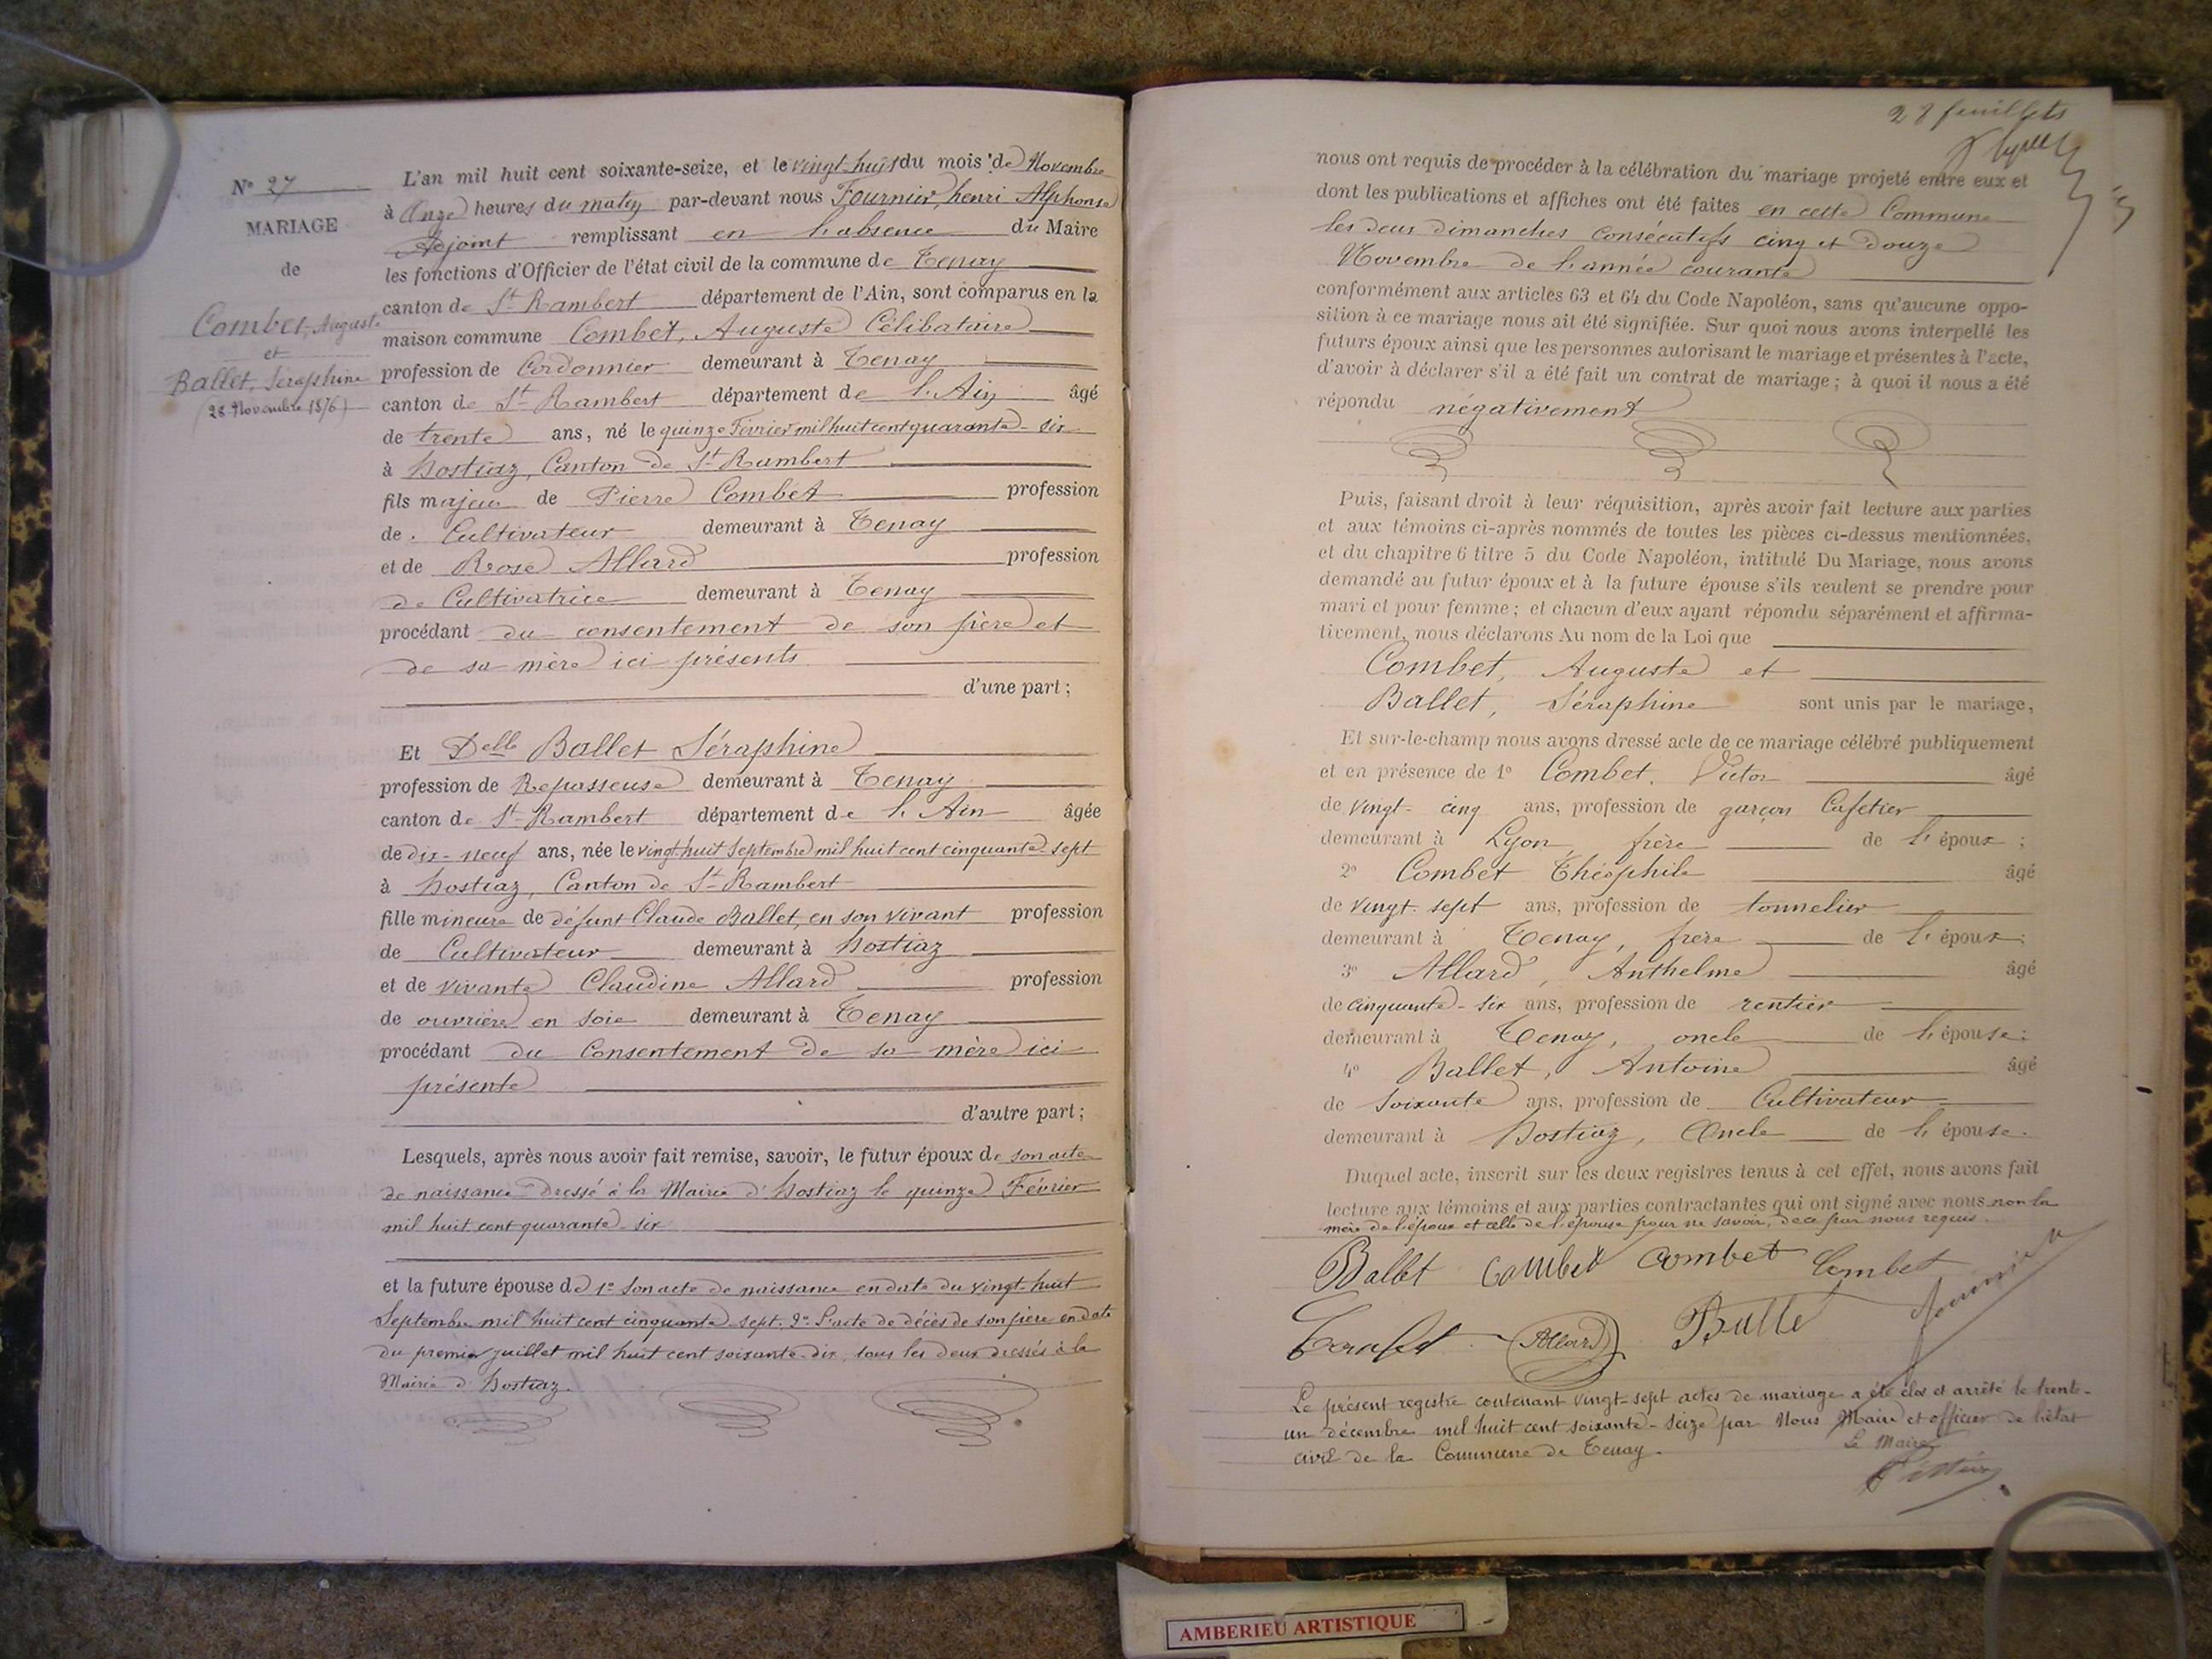 N° 27
MARIAGE
de
Combet, Auguste
et
Ballet, Séraphine
(28 Novembre 1876)
L'an mil huit cent soixante-seize, et le vingt-huit du mois de Novembre
à Onze heures du matin par-devant nous Fournier, henri Alphonse
Adjoint remplissant en l'absence du Maire
les fonctions d'Officier de l'état civil de la commune de Tenay
canton de St Rambert département de l'Ain, sont comparus en la
maison commune Combet, Auguste Célibataire
profession de Cordonnier demeurant à Tenay
canton de St Rambert département de l'Ain âgé
de trente ans, né le quinze Février mil huit cent quarante-six
à hostiaz, Canton de St Rambert
fils majeur de Pierre Combet profession
de Cultivateur demeurant à Tenay
et de Rose Allard profession
de Cultivatrice demeurant à Tenay
procédant du consentement de son père et
de sa mère ici présents
d'une part;
Et Delle Ballet Séraphine
profession de Repasseuse demeurant à Tenay
canton de St Rambert département de l'Ain âgée
de dix-neuf ans, née le vingt huit Septembre mil huit cent cinquante-sept
à hostiaz, Canton de St Rambert
fille mineure de défunt Claude Ballet, en son vivant profession
de Cultivateur demeurant à hostiaz
et de vivante Claudine Allard profession
de ouvrière en soie demeurant à Tenay
procédant du Consentement de sa mère ici
présente
d'autre part;
Lesquels, après nous avoir fait remise, savoir, le futur époux de son acte
de naissance dressé à la Mairie d'hostiaz le quinze Février
mil huit cent quarante-six
et la future épouse de 1° son acte de naissance en date du vingt-huit
Septembre mil huit cent cinquante-sept. 2° L'acte de décès de son père en date
du premier juillet mil huit cent soixante-dix, tous les deux dressés à la
Mairie d'hostiaz.
28 feuillets
nous ont requis de procéder à la célébration du mariage projeté entre eux et
dont les publications et affiches ont été faites en cette Commune
les deux dimanches consécutifs cinq et douze
Novembre de l'année courante
conformément aux articles 63 et 64 du Code Napoléon, sans qu'aucune oppo-
sition à ce mariage nous ait été signifiée. Sur quoi nous avons interpellé les
futurs époux ainsi que les personnes autorisant le mariage et présentes à l'acte,
d'avoir à déclarer s'il a été fait un contrat de mariage; à quoi il nous a été
répondu négativement
Puis, faisant droit à leur réquisition, après avoir fait lecture aux parties
et aux témoins ci-après nommés de toutes les pièces ci-dessus mentionnées,
et du chapitre 6 titre 5 du Code Napoléon, intitulé Du Mariage, nous avons
demandé au futur époux et à la future épouse s'ils veulent se prendre pour
mari et pour femme; et chacun d'eux ayant répondu séparément et affirma-
tivement, nous déclarons Au nom de la Loi que
Combet, Auguste et
Ballet, Séraphine sont unis par le mariage,
Et sur-le-champ nous avons dressé acte de ce mariage célébré publiquement
et en présence de 1° Combet, Victor âgé
de vingt-cinq ans, profession de garçon Cafetier
demeurant à Lyon, frère de l'époux;
2° Combet Théophile âgé
de vingt-sept ans, profession de tonnelier
demeurant à Tenay, frère de l'époux;
3° Allard, Anthelme âgé
de cinquante-six ans, profession de rentier
demeurant à Tenay, oncle de l'épouse;
4° Ballet, Antoine âgé
de soixante ans, profession de Cultivateur
demeurant à hostiaz, Oncle de l'épouse.
Duquel acte, inscrit sur les deux registres tenus à cet effet, nous avons fait
lecture aux témoins et aux parties contractantes qui ont signé avec nous non la
mère de l'époux et celle de l'épouse pour ne savoir, de ce par nous requis.
Ballet Combet Combet Combet
Combet Allard Balle Fournier
Le présent registre contenant vingt-sept actes de mariage a été clos et arrêté le trente-
un décembre mil huit cent soixante-seize par Nous Maire et officier de l'état
civil de la Commune de Tenay.
Le Maire
AMBERIEU ARTISTIQUE